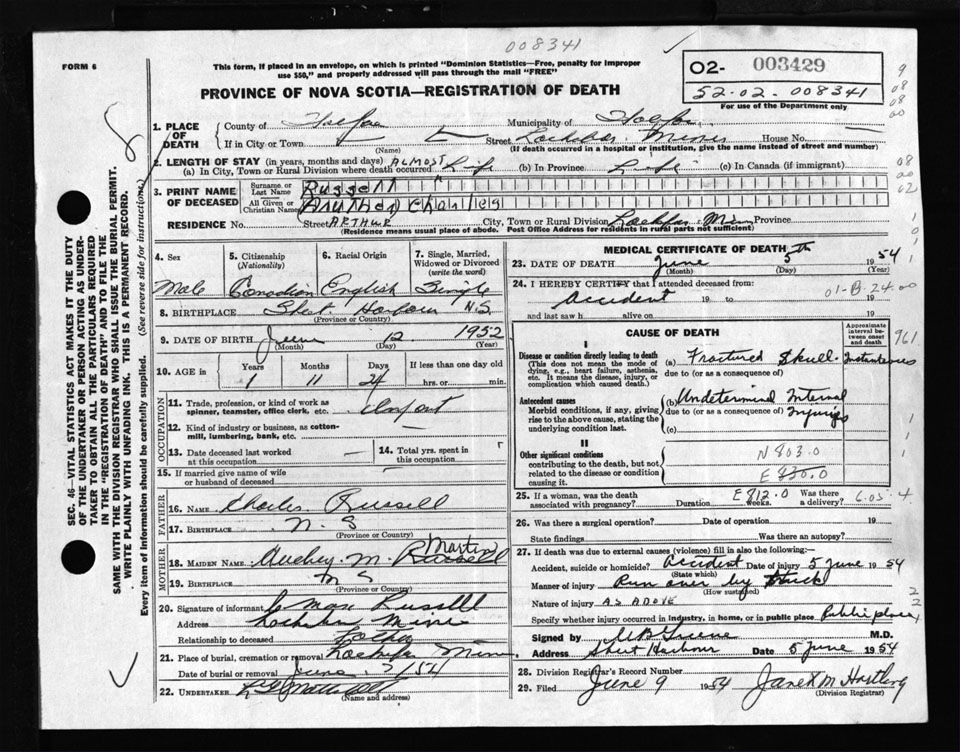 008341
FORM 6
This form, if placed in an envelope, on which is printed "Dominion Statistics—Free, penalty for improper
use $50," and properly addressed will pass through the mail "FREE"
02- 003429
52-02-008341
For use of the Department only
PROVINCE OF NOVA SCOTIA—REGISTRATION OF DEATH
SEC. 46—VITAL STATISTICS ACT MAKES IT THE DUTY
OF THE UNDERTAKER OR PERSON ACTING AS UNDER-
TAKER TO OBTAIN ALL THE PARTICULARS REQUIRED
IN THE "REGISTRATION OF DEATH" AND TO FILE THE
SAME WITH THE DIVISION REGISTRAR WHO SHALL ISSUE THE BURIAL PERMIT.
WRITE PLAINLY WITH UNFADING INK. THIS IS A PERMANENT RECORD.
Every item of information should be carefully supplied. (See reverse side for instructions.)
1. PLACE OF DEATH County of Halifax Municipality of Halifax
If in City or Town (Name) Street Mines House No.
(If death occurred in a hospital or institution, give the name instead of street and number)
2. LENGTH OF STAY (in years, months and days) ALMOST
(a) In City, Town or Rural Division where death occurred Life (b) In Province Life (c) In Canada (if immigrant)
3. PRINT NAME OF DECEASED Surname or Last Name Russell
All Given or Christian Names Arthur Charles
RESIDENCE No. Street ARTHUR City, Town or Rural Division Mines Province
(Residence means usual place of abode. Post Office Address for residents in rural parts not sufficient)
4. Sex Male
5. Citizenship (Nationality) Canadian
6. Racial Origin English
7. Single, Married, Widowed or Divorced (write the word) Single
8. BIRTHPLACE Sheet Harbour N.S.
(Province or Country)
9. DATE OF BIRTH June 12 1952
(Month) (Day) (Year)
10. AGE in Years 1 Months 11 Days 24 If less than one day old hrs. or min.
OCCUPATION
11. Trade, profession, or kind of work as spinner, teamster, office clerk, etc. Infant
12. Kind of industry or business, as cotton-mill, lumbering, bank, etc. —
13. Date deceased last worked at this occupation —
14. Total yrs. spent in this occupation
15. If married give name of wife or husband of deceased
FATHER
16. NAME Charles Russell
17. BIRTHPLACE N. S
(Province or Country)
MOTHER
18. MAIDEN NAME M. Russell Martin
19. BIRTHPLACE N S
(Province or Country)
20. Signature of informant Russell
Address Mines
Relationship to deceased Father
21. Place of burial, cremation or removal Mines
Date of burial or removal June 7/54
22. UNDERTAKER
(Name and address)
MEDICAL CERTIFICATE OF DEATH
23. DATE OF DEATH June 5th 1954
(Month) (Day) (Year)
24. I HEREBY CERTIFY that I attended deceased from:
accident 19 to 19
and last saw h alive on 19
CAUSE OF DEATH
Approximate interval between onset and death
I
Disease or condition directly leading to death
(This does not mean the mode of dying, e.g., heart failure, asthenia, etc. It means the disease, injury, or complication which caused death.)
(a) Fractured Skull. Instantaneous
due to (or as a consequence of)
Antecedent causes
Morbid conditions, if any, giving rise to the above cause, stating the underlying condition last.
(b) Undetermined Internal Injuries
due to (or as a consequence of)
(c)
II
Other significant conditions
contributing to the death, but not related to the disease or condition causing it.
N 803.0
E 830.0
25. If a woman, was the death associated with pregnancy? Duration weeks. Was there a delivery?
E812.0
26. Was there a surgical operation? Date of operation 19
State findings Was there an autopsy?
27. If death was due to external causes (violence) fill in also the following:—
Accident, suicide or homicide? Accident Date of injury 5 June 1954
(State which)
Manner of injury Run over by truck
(How sustained)
Nature of injury AS ABOVE
Specify whether injury occurred in industry, in home, or in public place Public place
Signed by M.D.
Address Sheet Harbour Date 5 June 1954
28. Division Registrar's Record Number
29. Filed June 9 1954 Janet M Hartling
(Division Registrar)